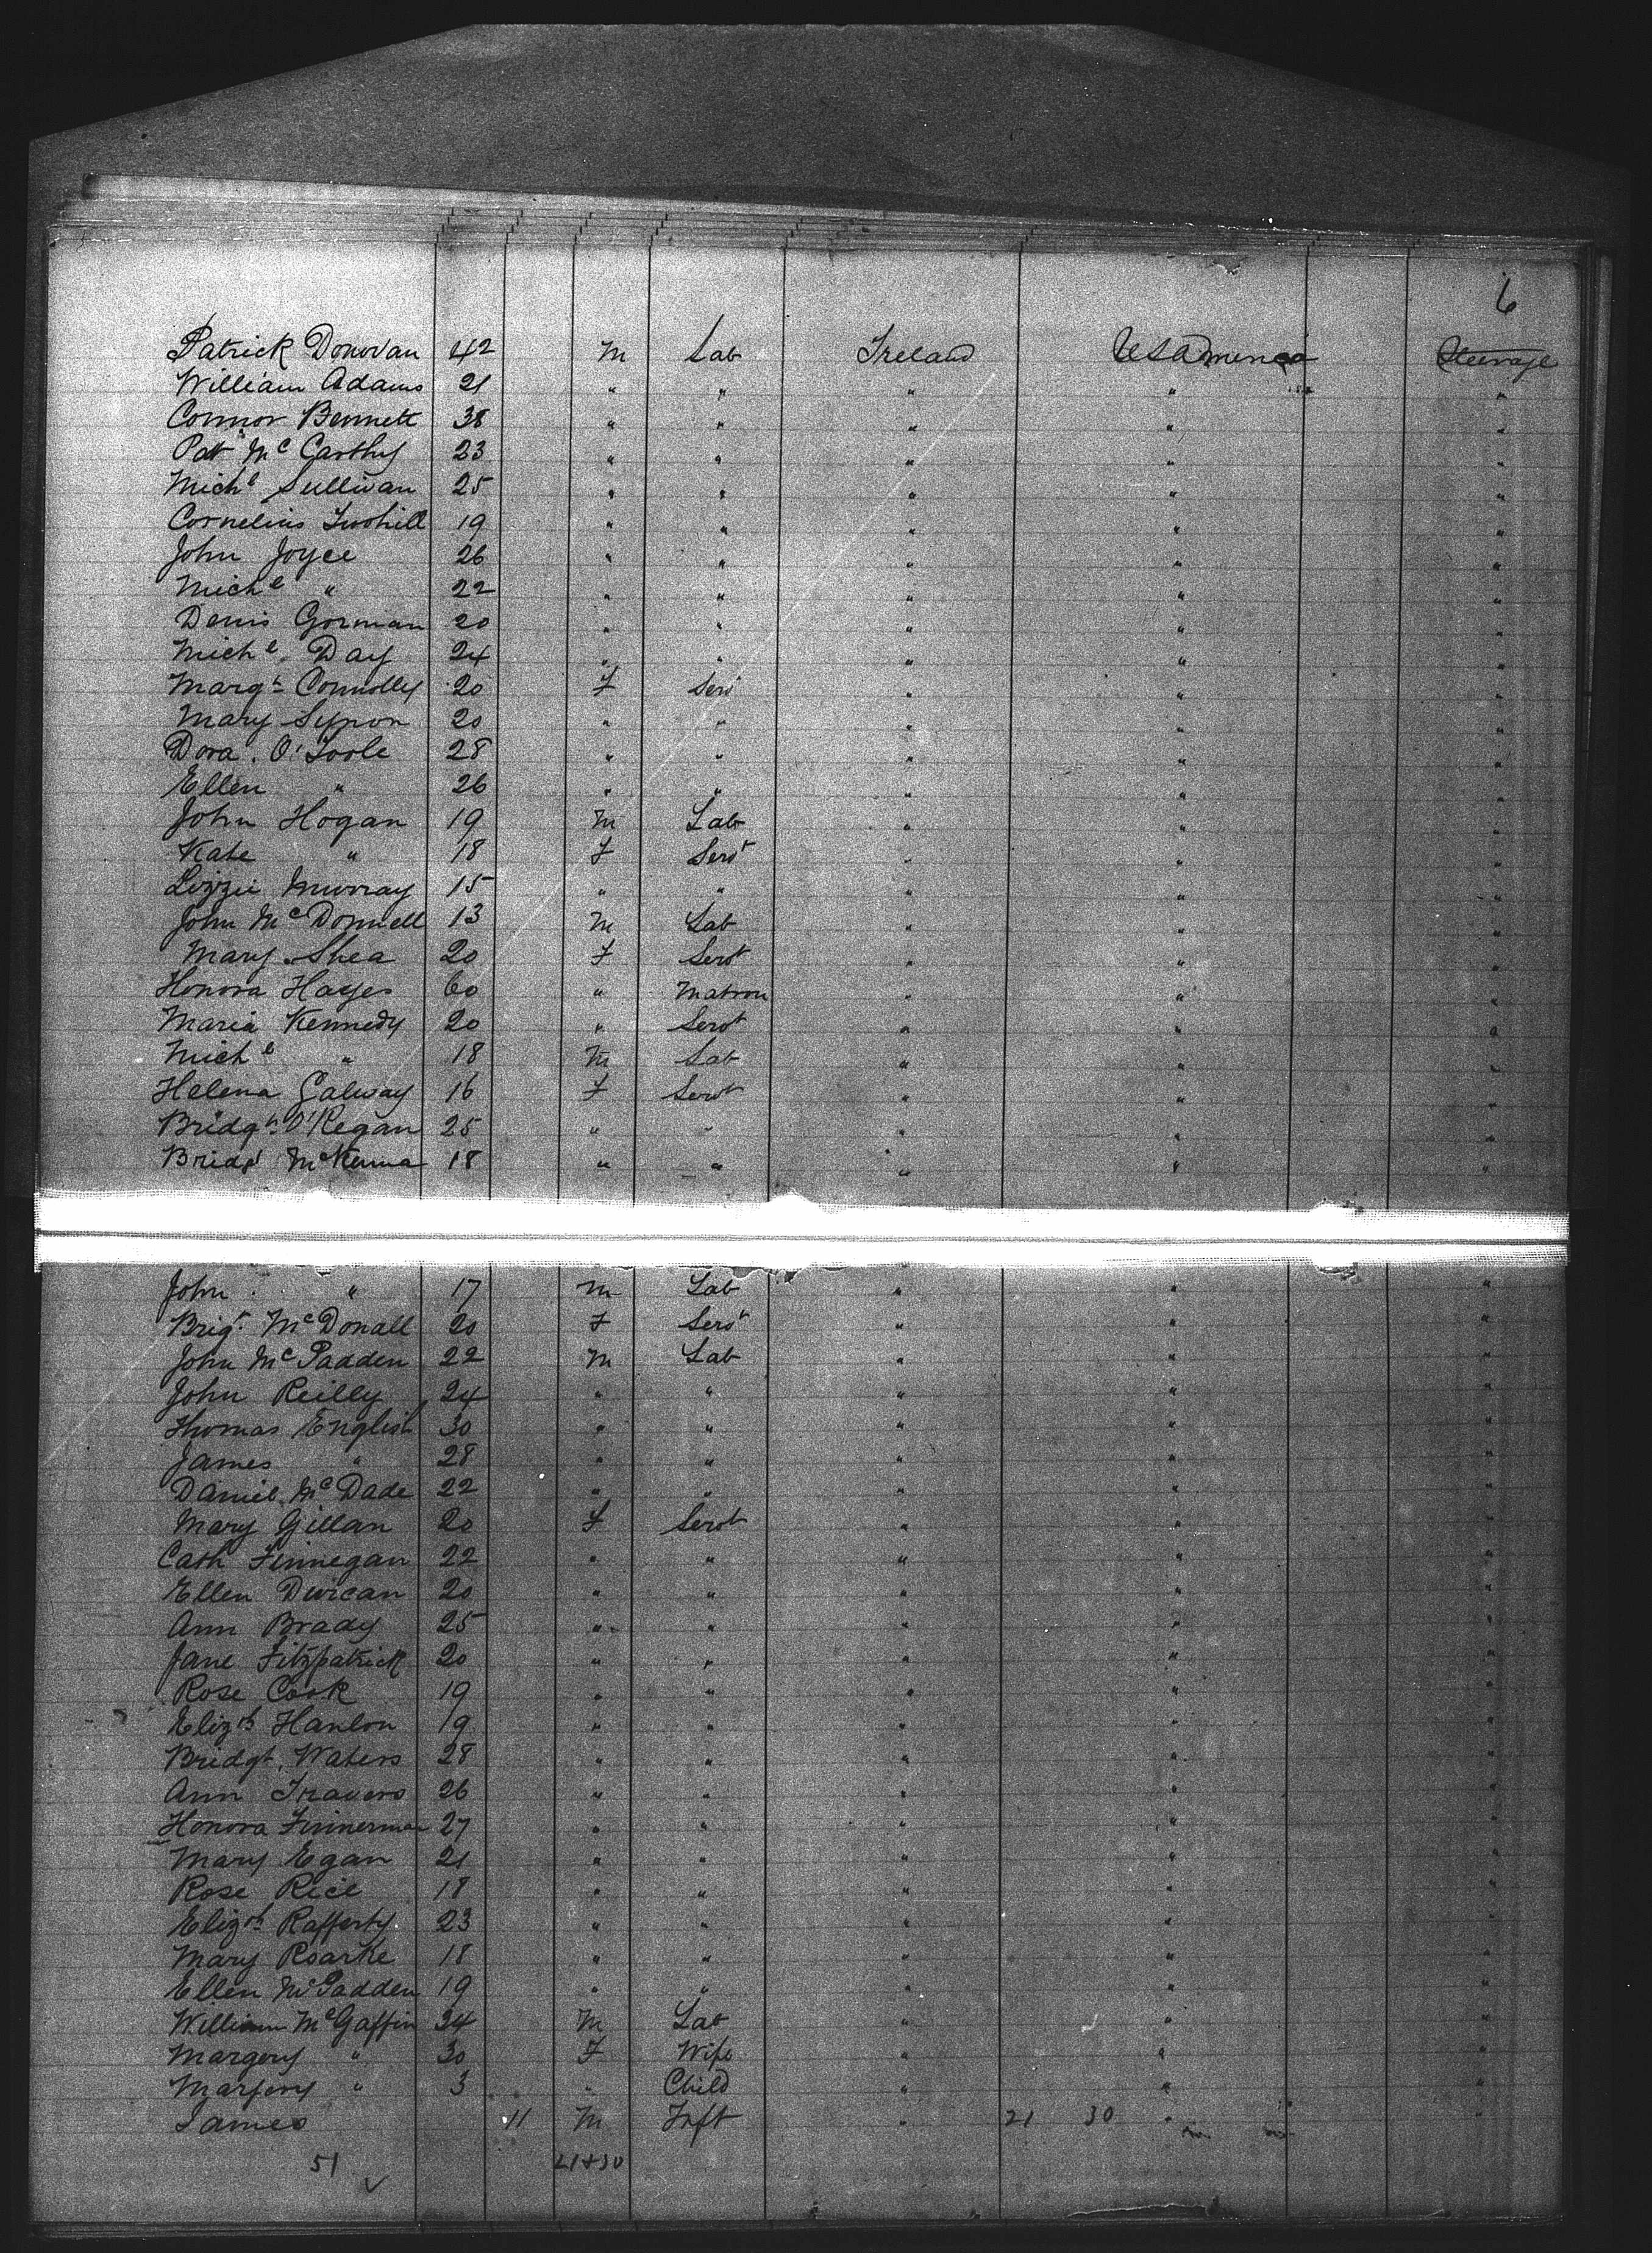 6
Patrick Donovan 42 M Lab Ireland USAmerica Steerage
William Adams 21 " " " " "
Connor Bennett 38 " " " " "
Patt Mc Carthy 23 " " " " "
Michl Sullivan 25 " " " " "
Cornelius Twohill 19 " " " " "
John Joyce 26 " " " " "
Michl " 22 " " " " "
Denis Gorman 20 " " " " "
Michl Day 24 " " " " "
Margt Connolly 20 F Serv " " "
Mary Synon 20 " " " " "
Dora O'Toole 28 " " " " "
Ellen " 26 " " " " "
John Hogan 19 M Lab " " "
Kate " 18 F Servt " " "
Lizzie Murray 15 " " " " "
John McDonnell 13 M Lab " " "
Mary Shea 20 F Servt " " "
Honora Hayes 60 " Matron " " "
Maria Kennedy 20 " Servt " " "
Michl " 18 M Lab " " "
Helena Galway 16 F Servt " " "
Bridgt O'Regan 25 " " " " "
Bridgt McKenna 18 " " " " "
John " 17 M Lab " " "
Brigt McDonall 20 F Servt " " "
John McPadden 22 M Lab " " "
John Reilly 24 " " " " "
Thomas English 30 " " " " "
James " 28 " " " " "
Daniel McDade 22 " " " " "
Mary Gillan 20 F Servt " " "
Cath Finnegan 22 " " " " "
Ellen Divican 20 " " " " "
Ann Brady 25 " " " " "
Jane Fitzpatrick 20 " " " " "
Rose Cook 19 " " " " "
Elizth Hanlon 19 " " " " "
Bridgt Waters 28 " " " " "
Ann Travers 26 " " " " "
Honora Finnerman 27 " " " " "
Mary Egan 21 " " " " "
Rose Rice 18 " " " " "
Elizth Rafferty 23 " " " " "
Mary Roarke 18 " " " " "
Ellen McPadden 19 " " " " "
William McGaffin 34 M Lab " " "
Margery " 30 F Wife " " "
Marjery " 3 " Child " " "
James 11 M Inft " 21 30 " "
51 21+30